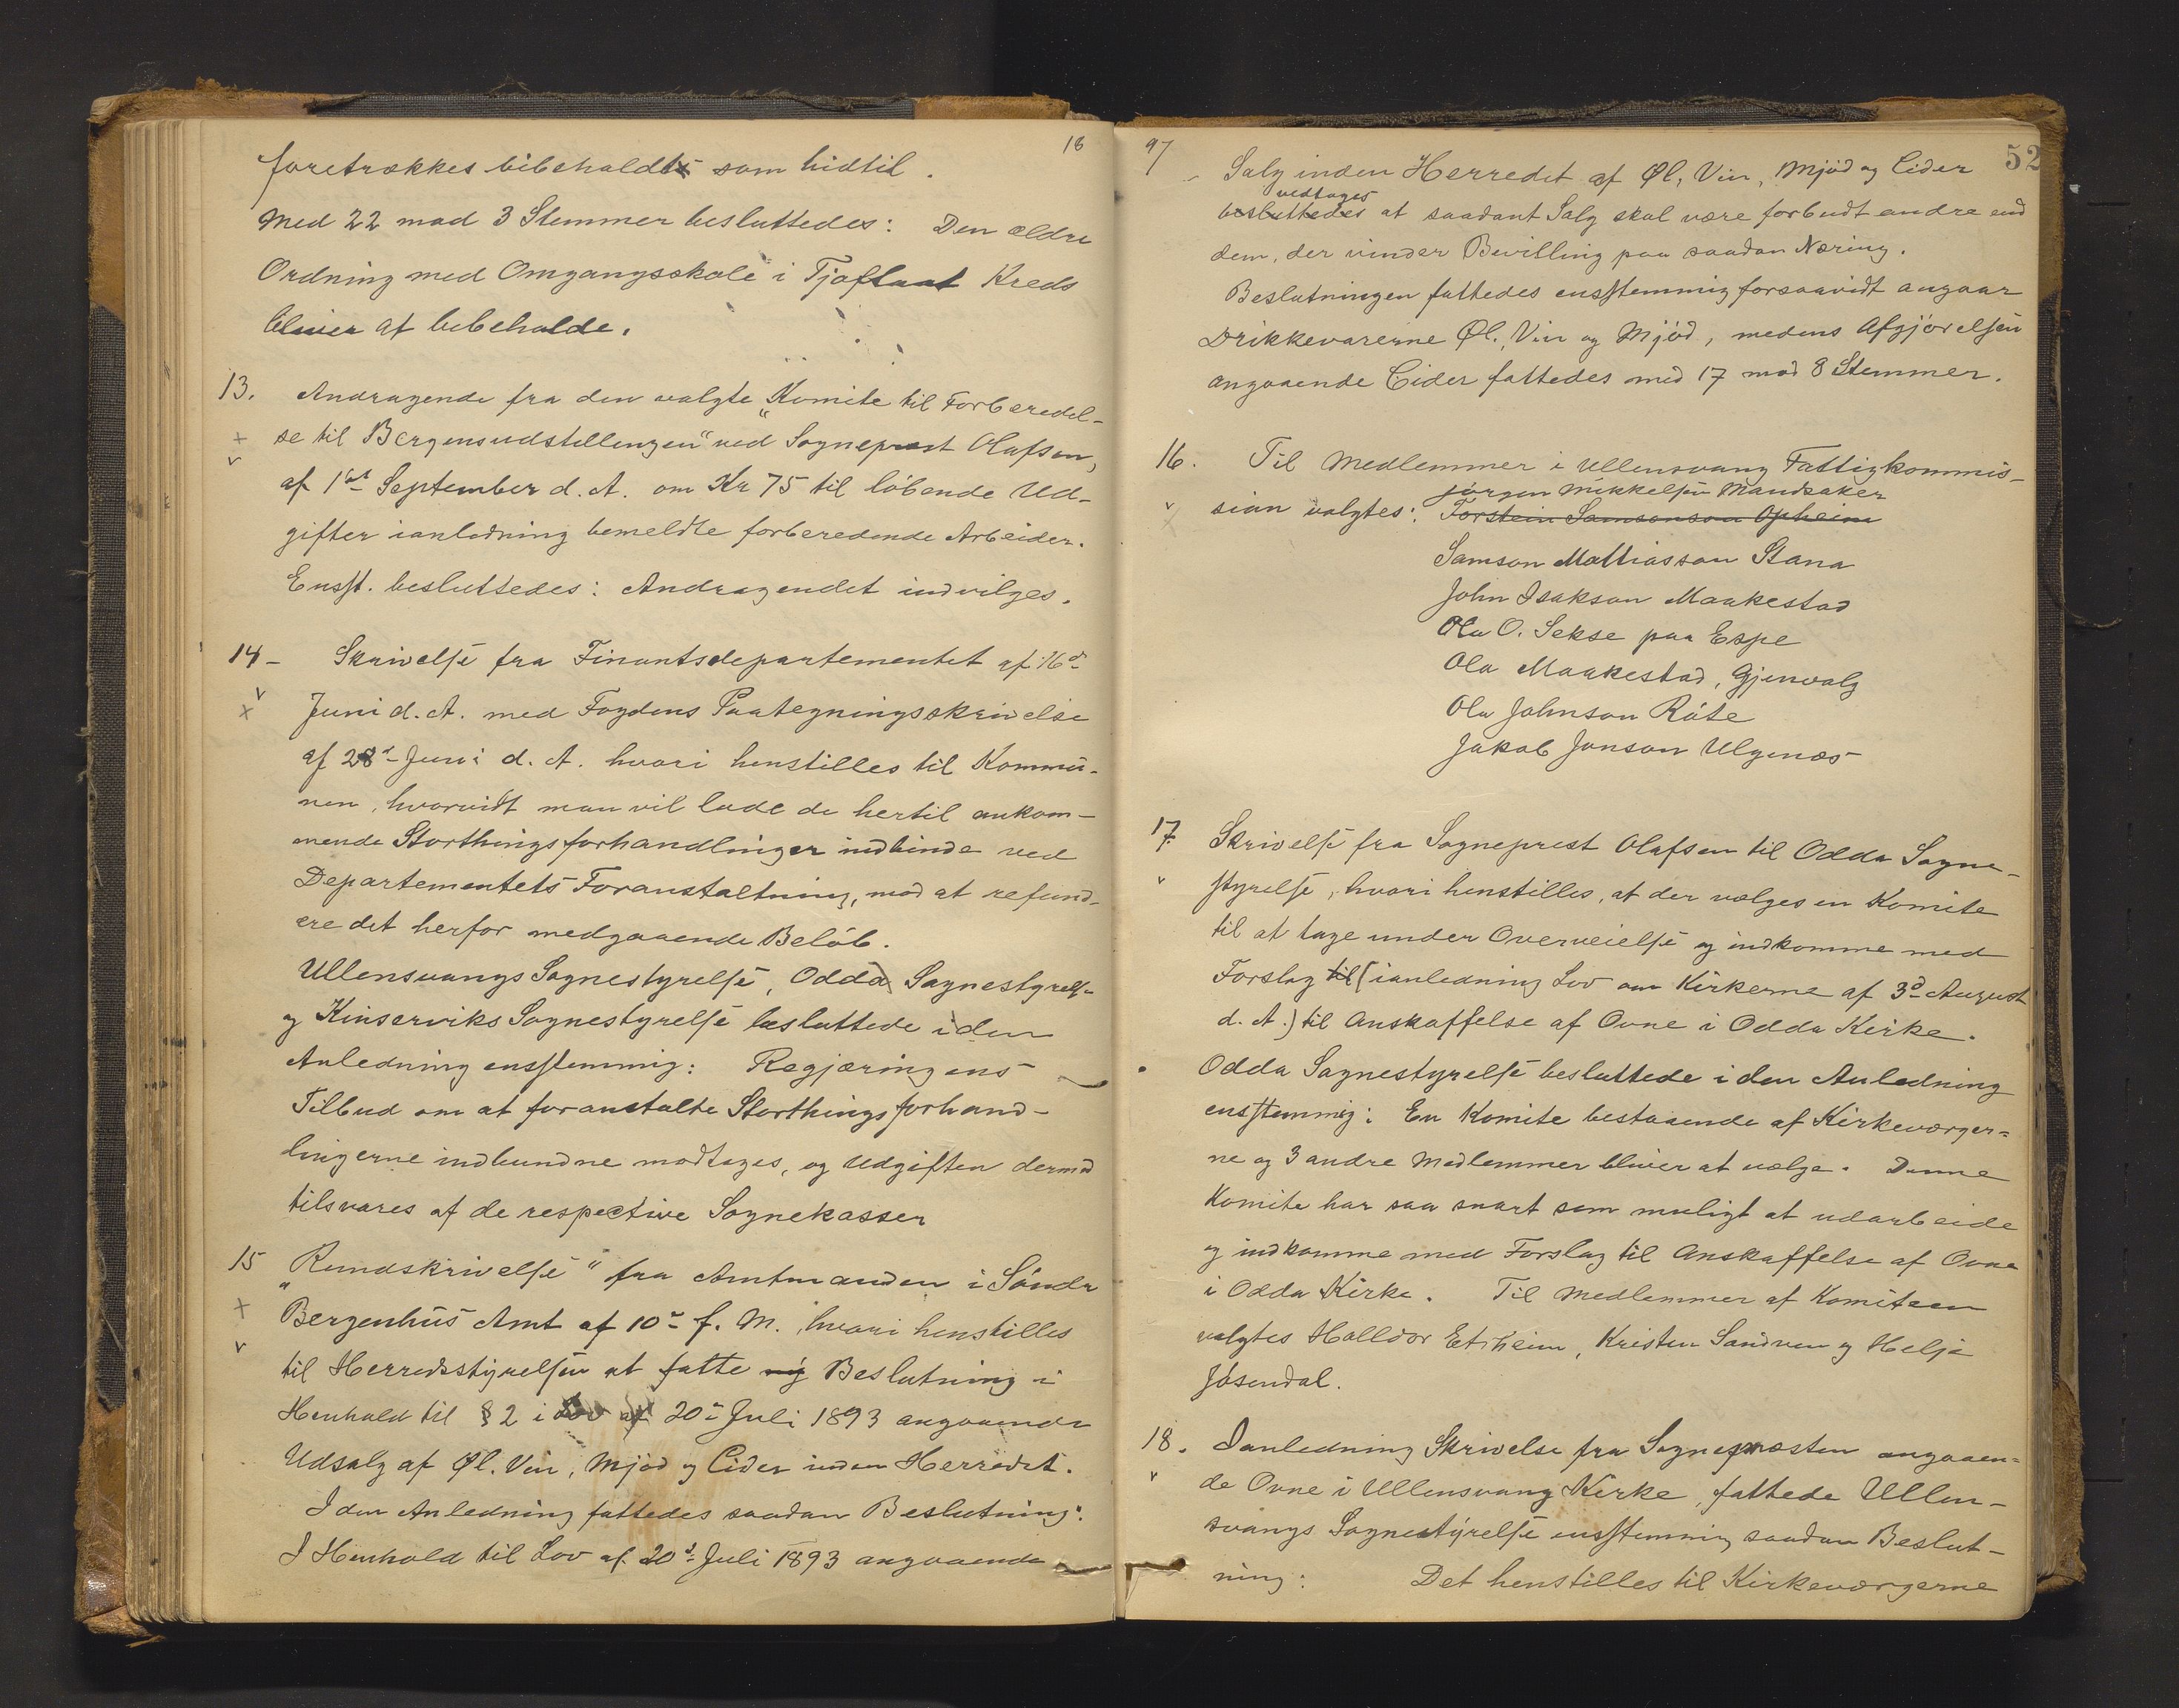 18
foretrækkes bibeholdt som hidtil.
Med 22 mod 3 Stemmer besluttedes: Den ældre
Ordning med Omgangsskole i Tjoflaat Kreds
bliver at bibeholde.
13. Andragende fra den valgte „Komite til Forberedel-
se til Bergensudstillingen“ ved Sogneprest Olafsen,
af 1ste September d. A. om Kr 75 til løbende Ud-
gifter ianledning bemeldte forberedende Arbeider.
Enst. besluttedes: Andragendet indvilges.
14 - Skrivelse fra Finantsdepartementet af 16d
Juni d. A. med Fogdens Paategningsskrivelse
af 28d Juni d. A. hvori henstilles til Kommu-
nen, hvorvidt man vil lade de hertil ankom-
mende Storthingsforhandlinger indbinde ved
Departementets Foranstaltning, mod at refund-
ere det herfor medgaaende Beløb.
Ullensvangs Sognestyrelse, Odda Sognestyrelse
og Kinserviks Sognestyrelse besluttede i den
Anledning enstemmig: Regjæringens
Tilbud om at foranstalte Storthingsforhand-
lingerne indbundne modtages, og Udgiften dermed
tilsvares af de respective Sognekasser
15 „Rundskrivelse“ fra Amtmanden i Søndre
Bergenhus Amt af 10d f. M., hvori henstilles
til Herredsstyrelsen at fatte Beslutning i
Henhold til § 2 i Lov af 20d Juli 1893 angaaende
Udsalg af Øl. Vin, Mjød og Cider inden Herredet.
I den Anledning fattedes saadan Beslutning:
I Henhold til Lov af 20d Juli 1893 angaaende
97
52
Salg inden Herredet af Øl, Vin, Mjød og Cider
vedtages
besluttedes at saadant Salg skal være forbudt andre end
dem, der vinder Bevilling paa saadan Næring.
Beslutningen fattedes enstemmig forsaavidt angaar
Drikkevarerne Øl., Vin og Mjød, medens Afgjørelsen
angaaende Cider fattedes med 17 mod 8 Stemmer.
16. Til Medlemmer i Ullensvang Fattigkommis-
Jørgen Mikkelsen Mandsaker
sion valgtes: Torstein Samsonson Opheim
Samson Mathiasson Stana
John Isakson Maakestad
Ola O. Sekse paa Espe
Ola Maakestad, Gjenvalg
Ola Johnson Råte
Jakob Jonson Ulgenæs
17. Skrivelse fra Sogneprest Olafsen til Odda Sogne-
styrelse, hvori henstilles, at der vælges en Komite
til at tage under Overveielse og indkomme med
Forslag til (ianledning Lov om Kirkerne af 3d August
d. A.) til Anskaffelse af Ovne i Odda Kirke.
Odda Sognestyrelse besluttede i den Anledning
enstemmig: En Komite bestaaende af Kirkeværger-
ne og 3 andre Medlemmer bliver at vælge. Denne
Komite har saa snart som muligt at udarbeide
og indkomme med Forslag til Anskaffelse af Ovne
i Odda Kirke. Til Medlemmer af Komiteen
valgtes Halldor Eitrheim, Kristen Sandven og Helje
Jøsendal.
18. Ianledning Skrivelse fra Sognepræsten angaaen-
de Ovne i Ullensvang Kirke, fattede Ullen-
svangs Sognestyrelse enstemmig saadan Beslut-
ning: Det henstilles til Kirkeværgerne